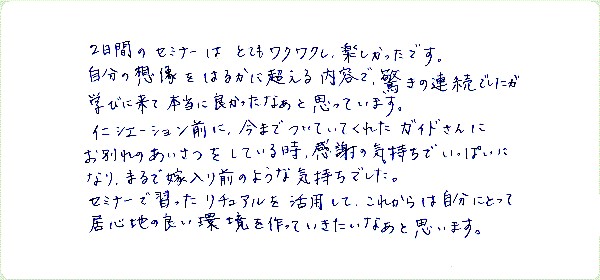 2日間のセミナーはとてもワクワクし、楽しかったです。
自分の想像をはるかに超える内容で、驚きの連続でしたが
学びに来て本当に良かったなぁと思っています。
イニシエーション前に、今までついていてくれたガイドさんに
お別れのあいさつをしている時、感謝の気持ちでいっぱいに
なり、まるで嫁入り前のような気持ちでした。
セミナーで習ったリチュアルを活用して、これからは自分にとって
居心地の良い環境を作っていきたいなぁと思います。